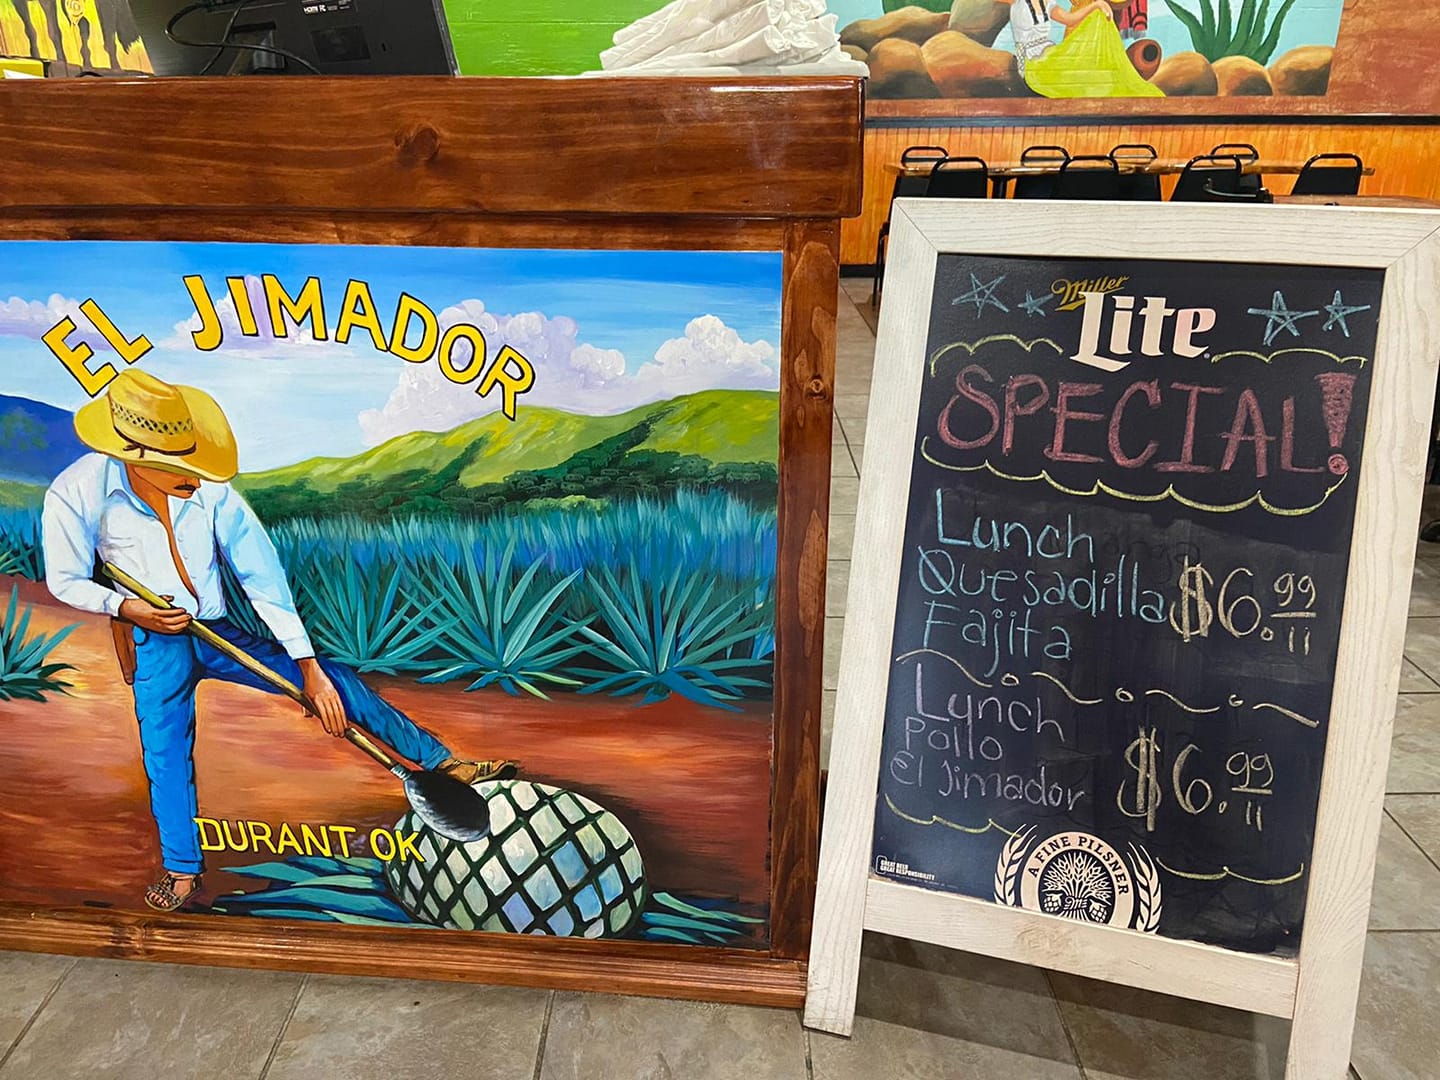 HDMI
EL JIMADOR
DURANT OK
Miller
Lite
SPECIAL!
Lunch
Quesadilla $6.99
Fajita
Lunch
Pollo
El Jimador $6.99
A FINE PILSNER
GREAT BEER
GREAT RESPONSIBILITY